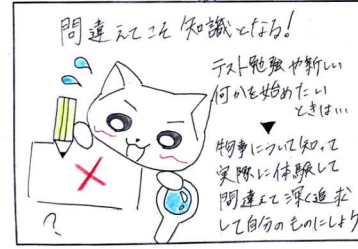 間違えてこそ知識となる!
テスト勉強や新しい
何かを始めたい
ときは…
▼
物事について知って
実際に体験して
間違えて深く追求
して自分のものにしよう
?